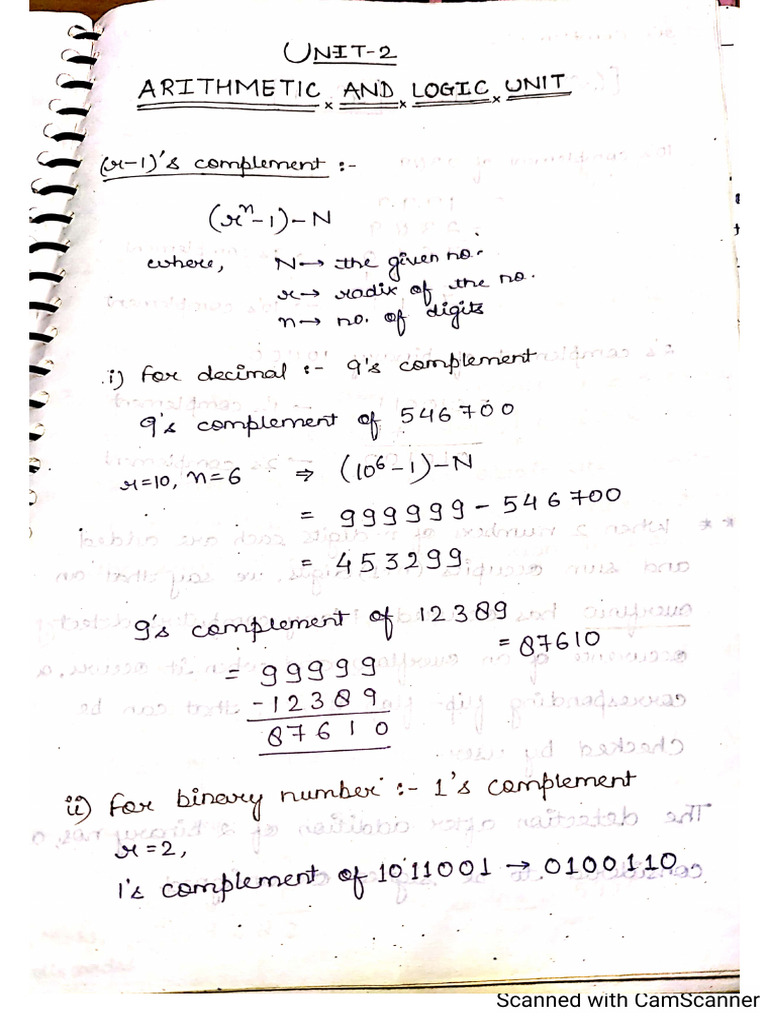 UNIT-2
ARITHMETIC AND LOGIC UNIT
(r-1)'s complement :-
(rⁿ-1)-N
where, N→ the given no.
r→ radix of the no.
n→ no. of digits
i) for decimal :- 9's complement
9's complement of 546700
r=10, n=6 ⇒ (10⁶-1)-N
= 999999-546700
= 453299
9's complement of 12389
= 87610
= 99999
-12389
87610
ii) for binary number :- 1's complement
r=2,
1's complement of 1011001 → 0100110
Scanned with CamScanner